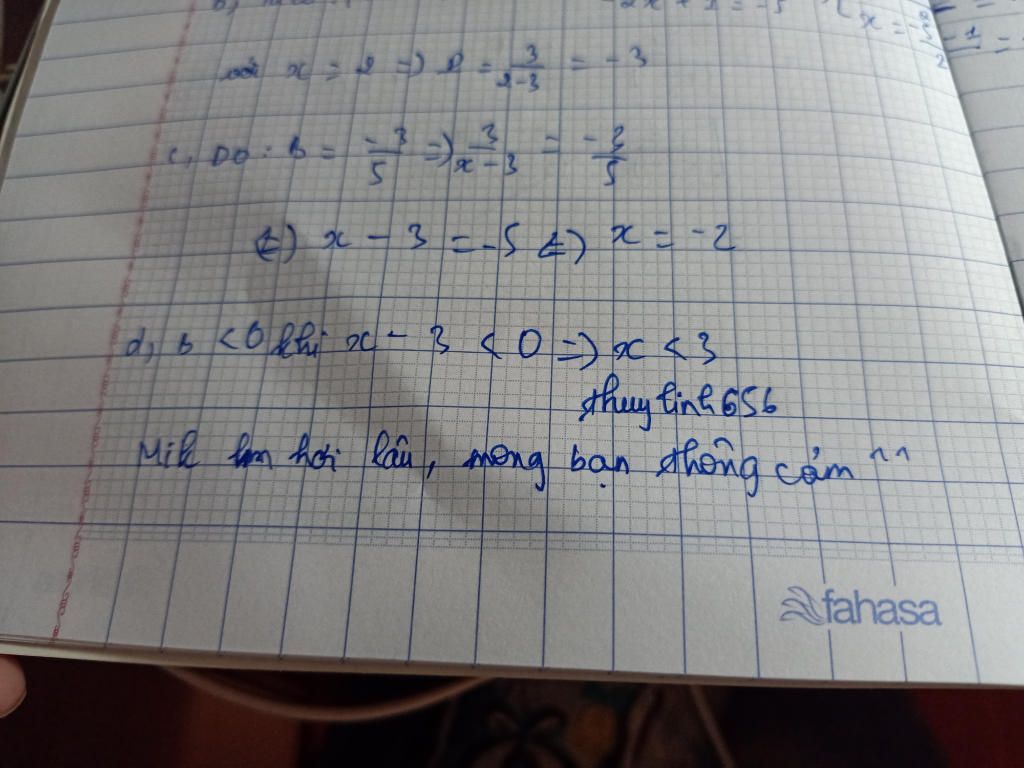 -2x + 1 = -5
x = 2 => B = 3/(2-3) = -3
c, Do: B = -3/5 => 3/(x-3) = -3/5
<=) x - 3 = -5 <=) x = -2
d, B < 0 khi x - 3 < 0 => x < 3
thuy tinh 656
Mik lm hơi lâu, mong bạn thông cảm ^^
fahasa